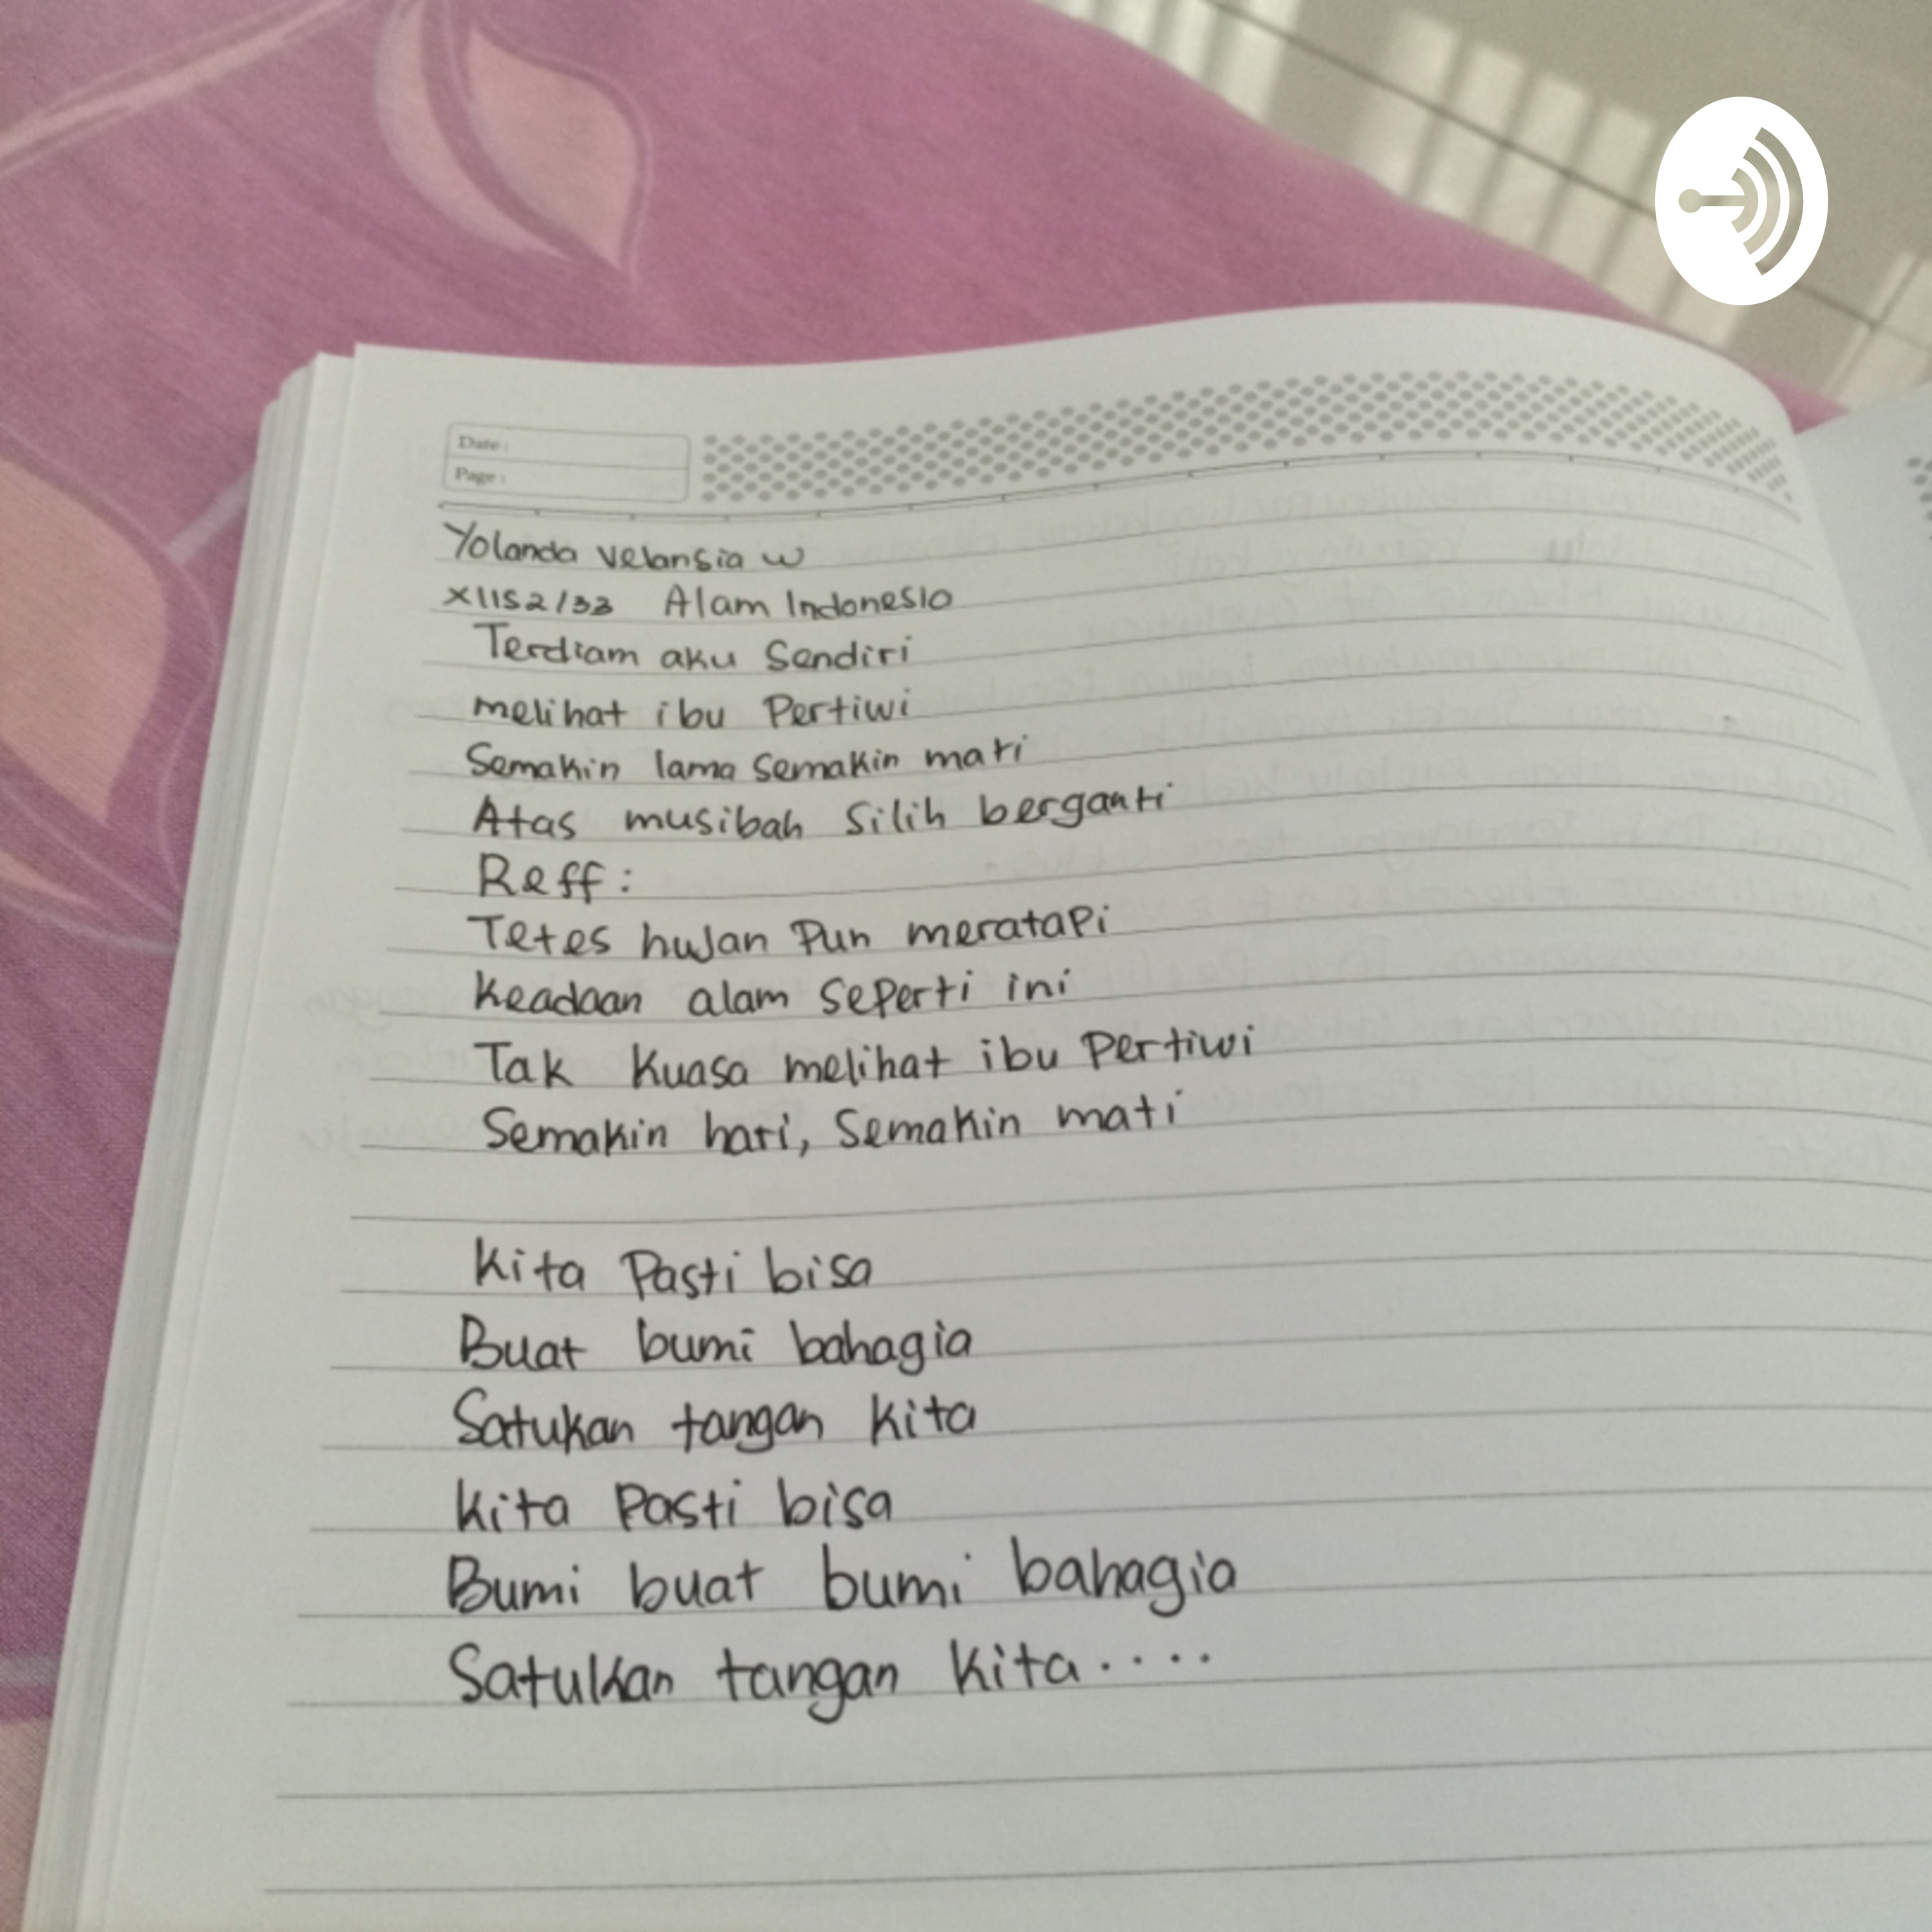 Date :
Page :
Yolanda velansia w
XIIS2/33 Alam Indonesia
Terdiam aku Sendiri
melihat ibu Pertiwi
Semakin lama semakin mati
Atas musibah Silih berganti
Reff :
Tetes hujan Pun meratapi
Keadaan alam seperti ini
Tak Kuasa melihat ibu Pertiwi
Semakin hari, Semakin mati
Kita Pasti bisa
Buat bumi bahagia
Satukan tangan Kita
Kita Pasti bisa
Bumi buat bumi bahagia
Satukan tangan Kita....